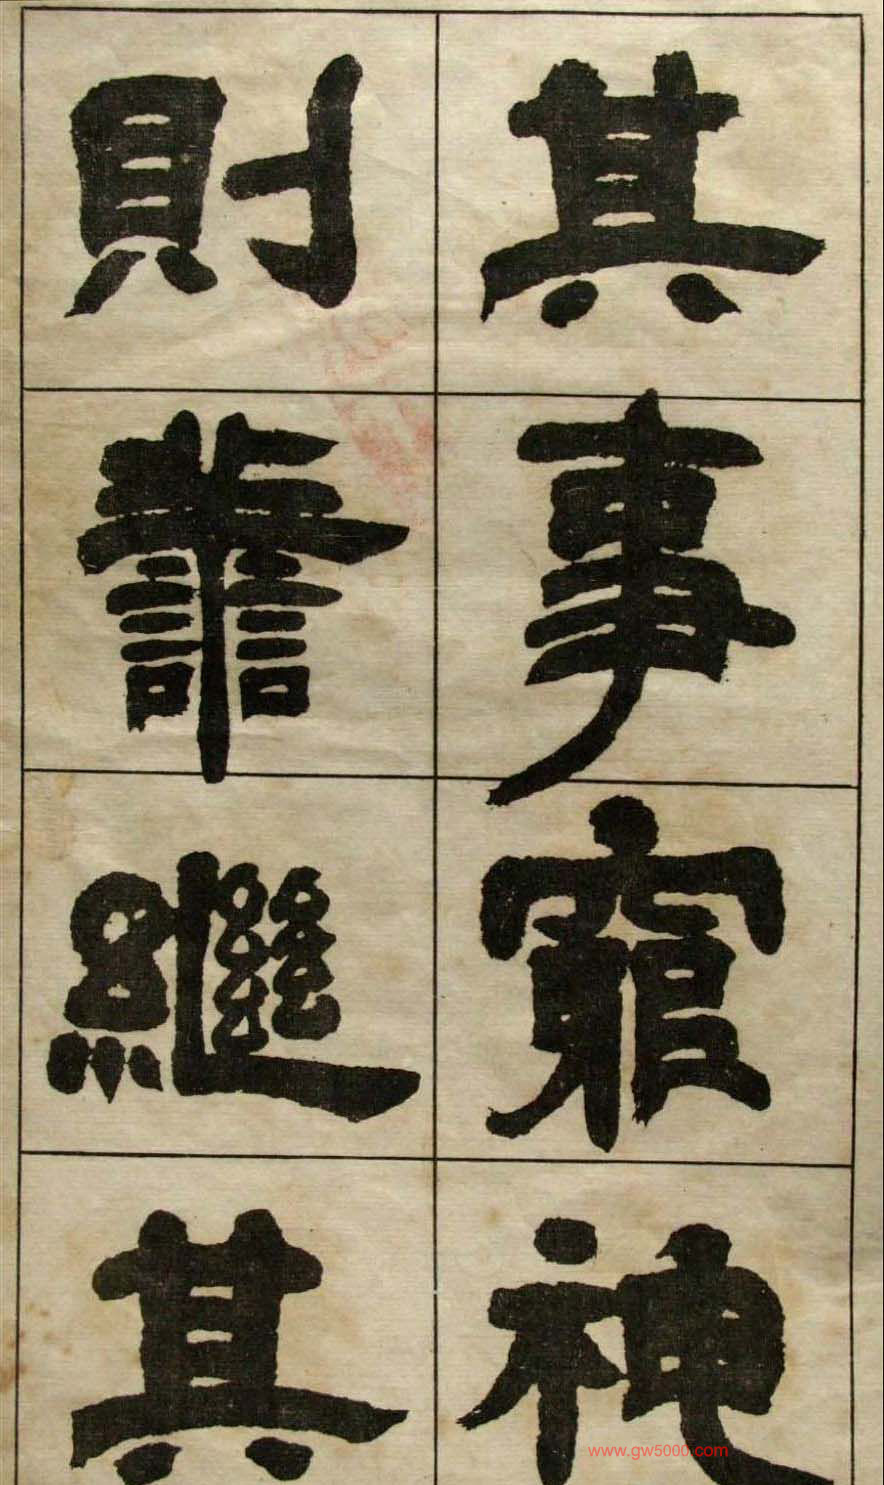 其事窮神
則譱繼其
www.gw5000.com